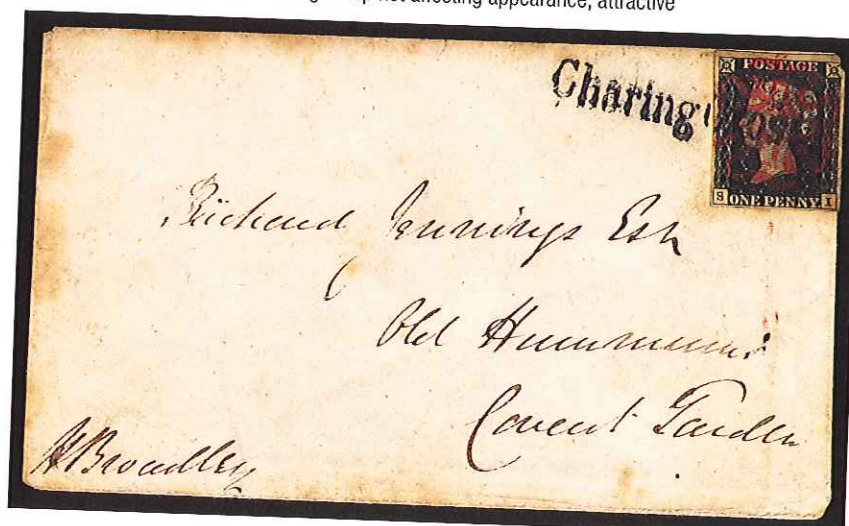 not affecting appearance, attractive
Charing Cross
POSTAGE
S ONE PENNY I
Richard Jennings Esq
Old Hummums
Covent Garden
H Broadley